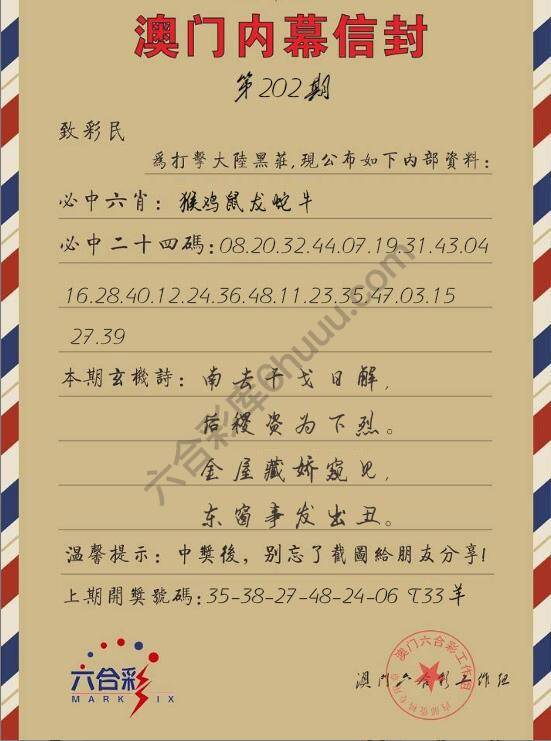 澳门内幕信封
第202期
致彩民
為打擊大陸黑莊,現公布如下内部資料:
必中六肖: 猴鸡鼠龙蛇牛
必中二十四碼:08.20.32.44.07.19.31.43.04
16.28.40.12.24.36.48.11.23.35.47.03.15
27.39
本期玄機詩: 南去干戈日解,
后稷资为下烈。
金屋藏娇窥见,
东窗事发出丑。
温馨提示: 中獎後, 别忘了截圖給朋友分享!
上期開獎號碼:35-38-27-48-24-06 T33羊
六合彩
MARK SIX
澳门六合彩工作组
澳门六合彩工作组
六合彩库@huuu.com